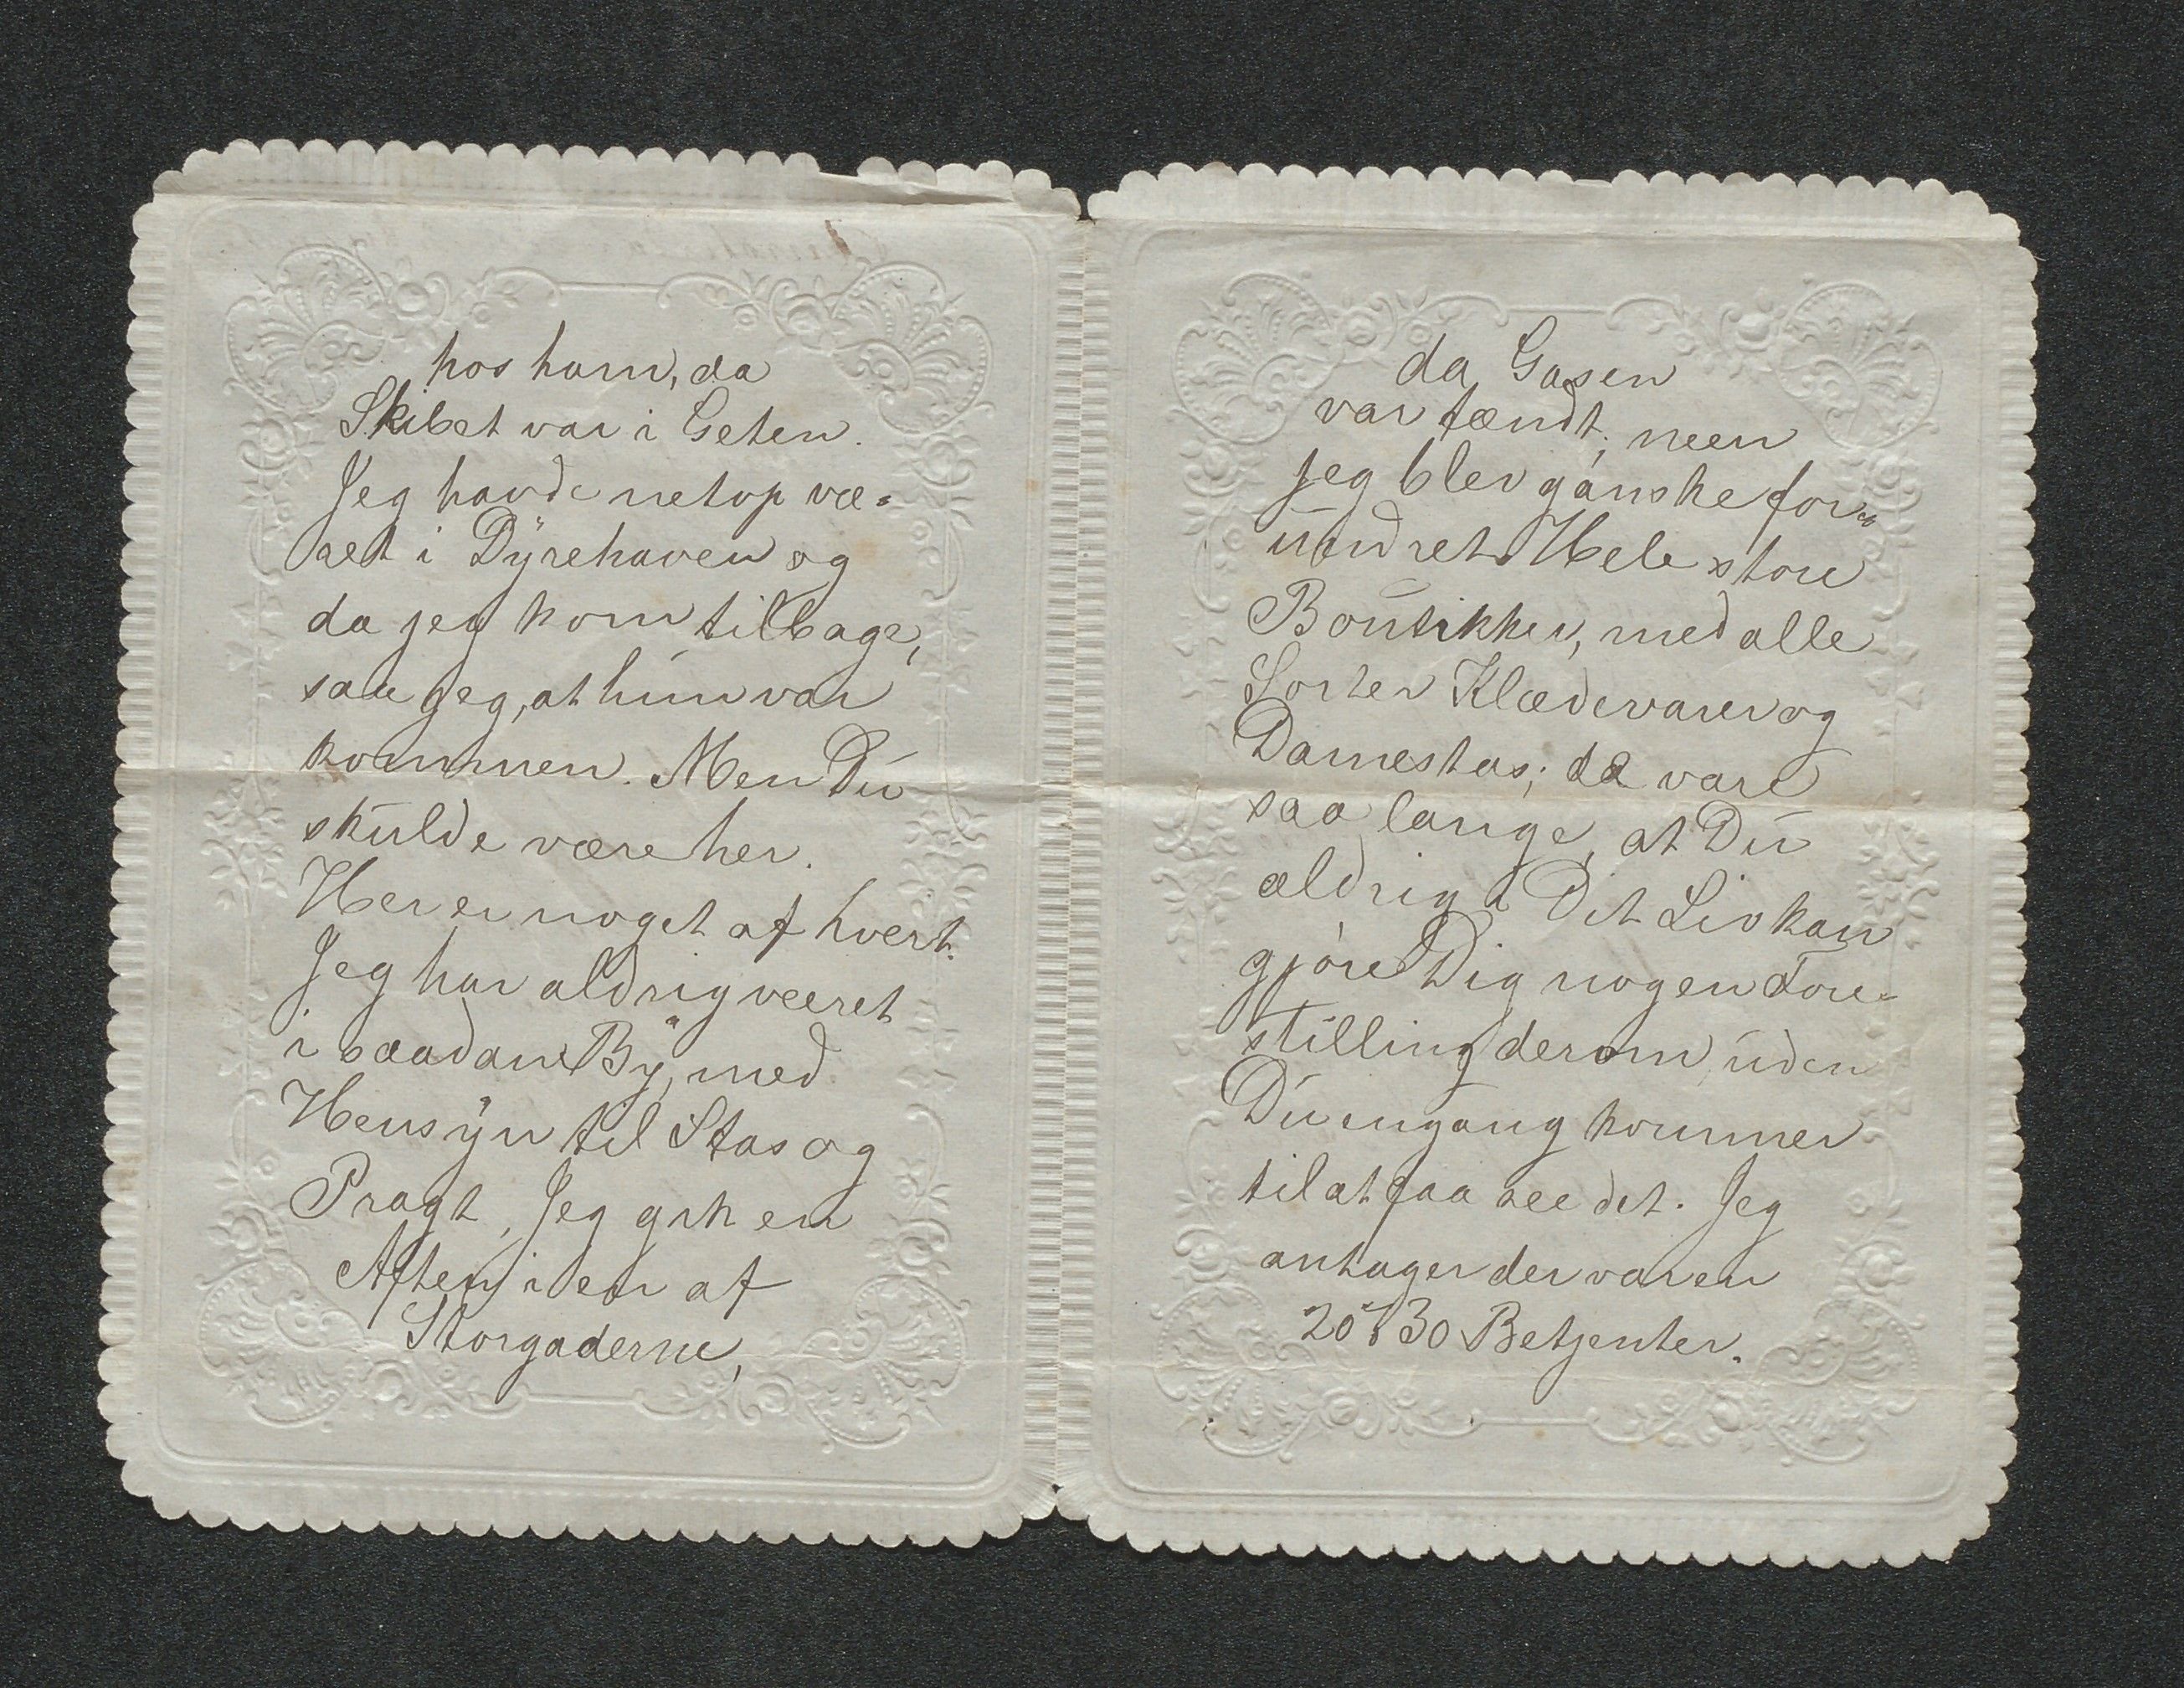 hos ham, da
Skibet var i Geten.
Jeg havde netop væ-
ret i Dÿrehaven og
da jeg kom tilbage,
saa jeg, at hun var
kommen. Men Du
skulde være her.
Her er noget af hvert.
Jeg har aldrig været
i saadan Bÿ, med
Hensÿn til Stas og
Pragt, Jeg gik en
Aften i en af
Storgaderne,
da Gasen
var tændt; neen
jeg blev ganske for-
undret. Hele store
Boutikker, med alle
Sorter Klædevarer og
Damestas; da vare
saa lange, at Du
aldrig i Dit Liv kan
gjøre Dig nogen Fore-
stilling derom uden
Du engang kommer
til at faa see det. Jeg
antager der var en
20 à 30 Betjenter.